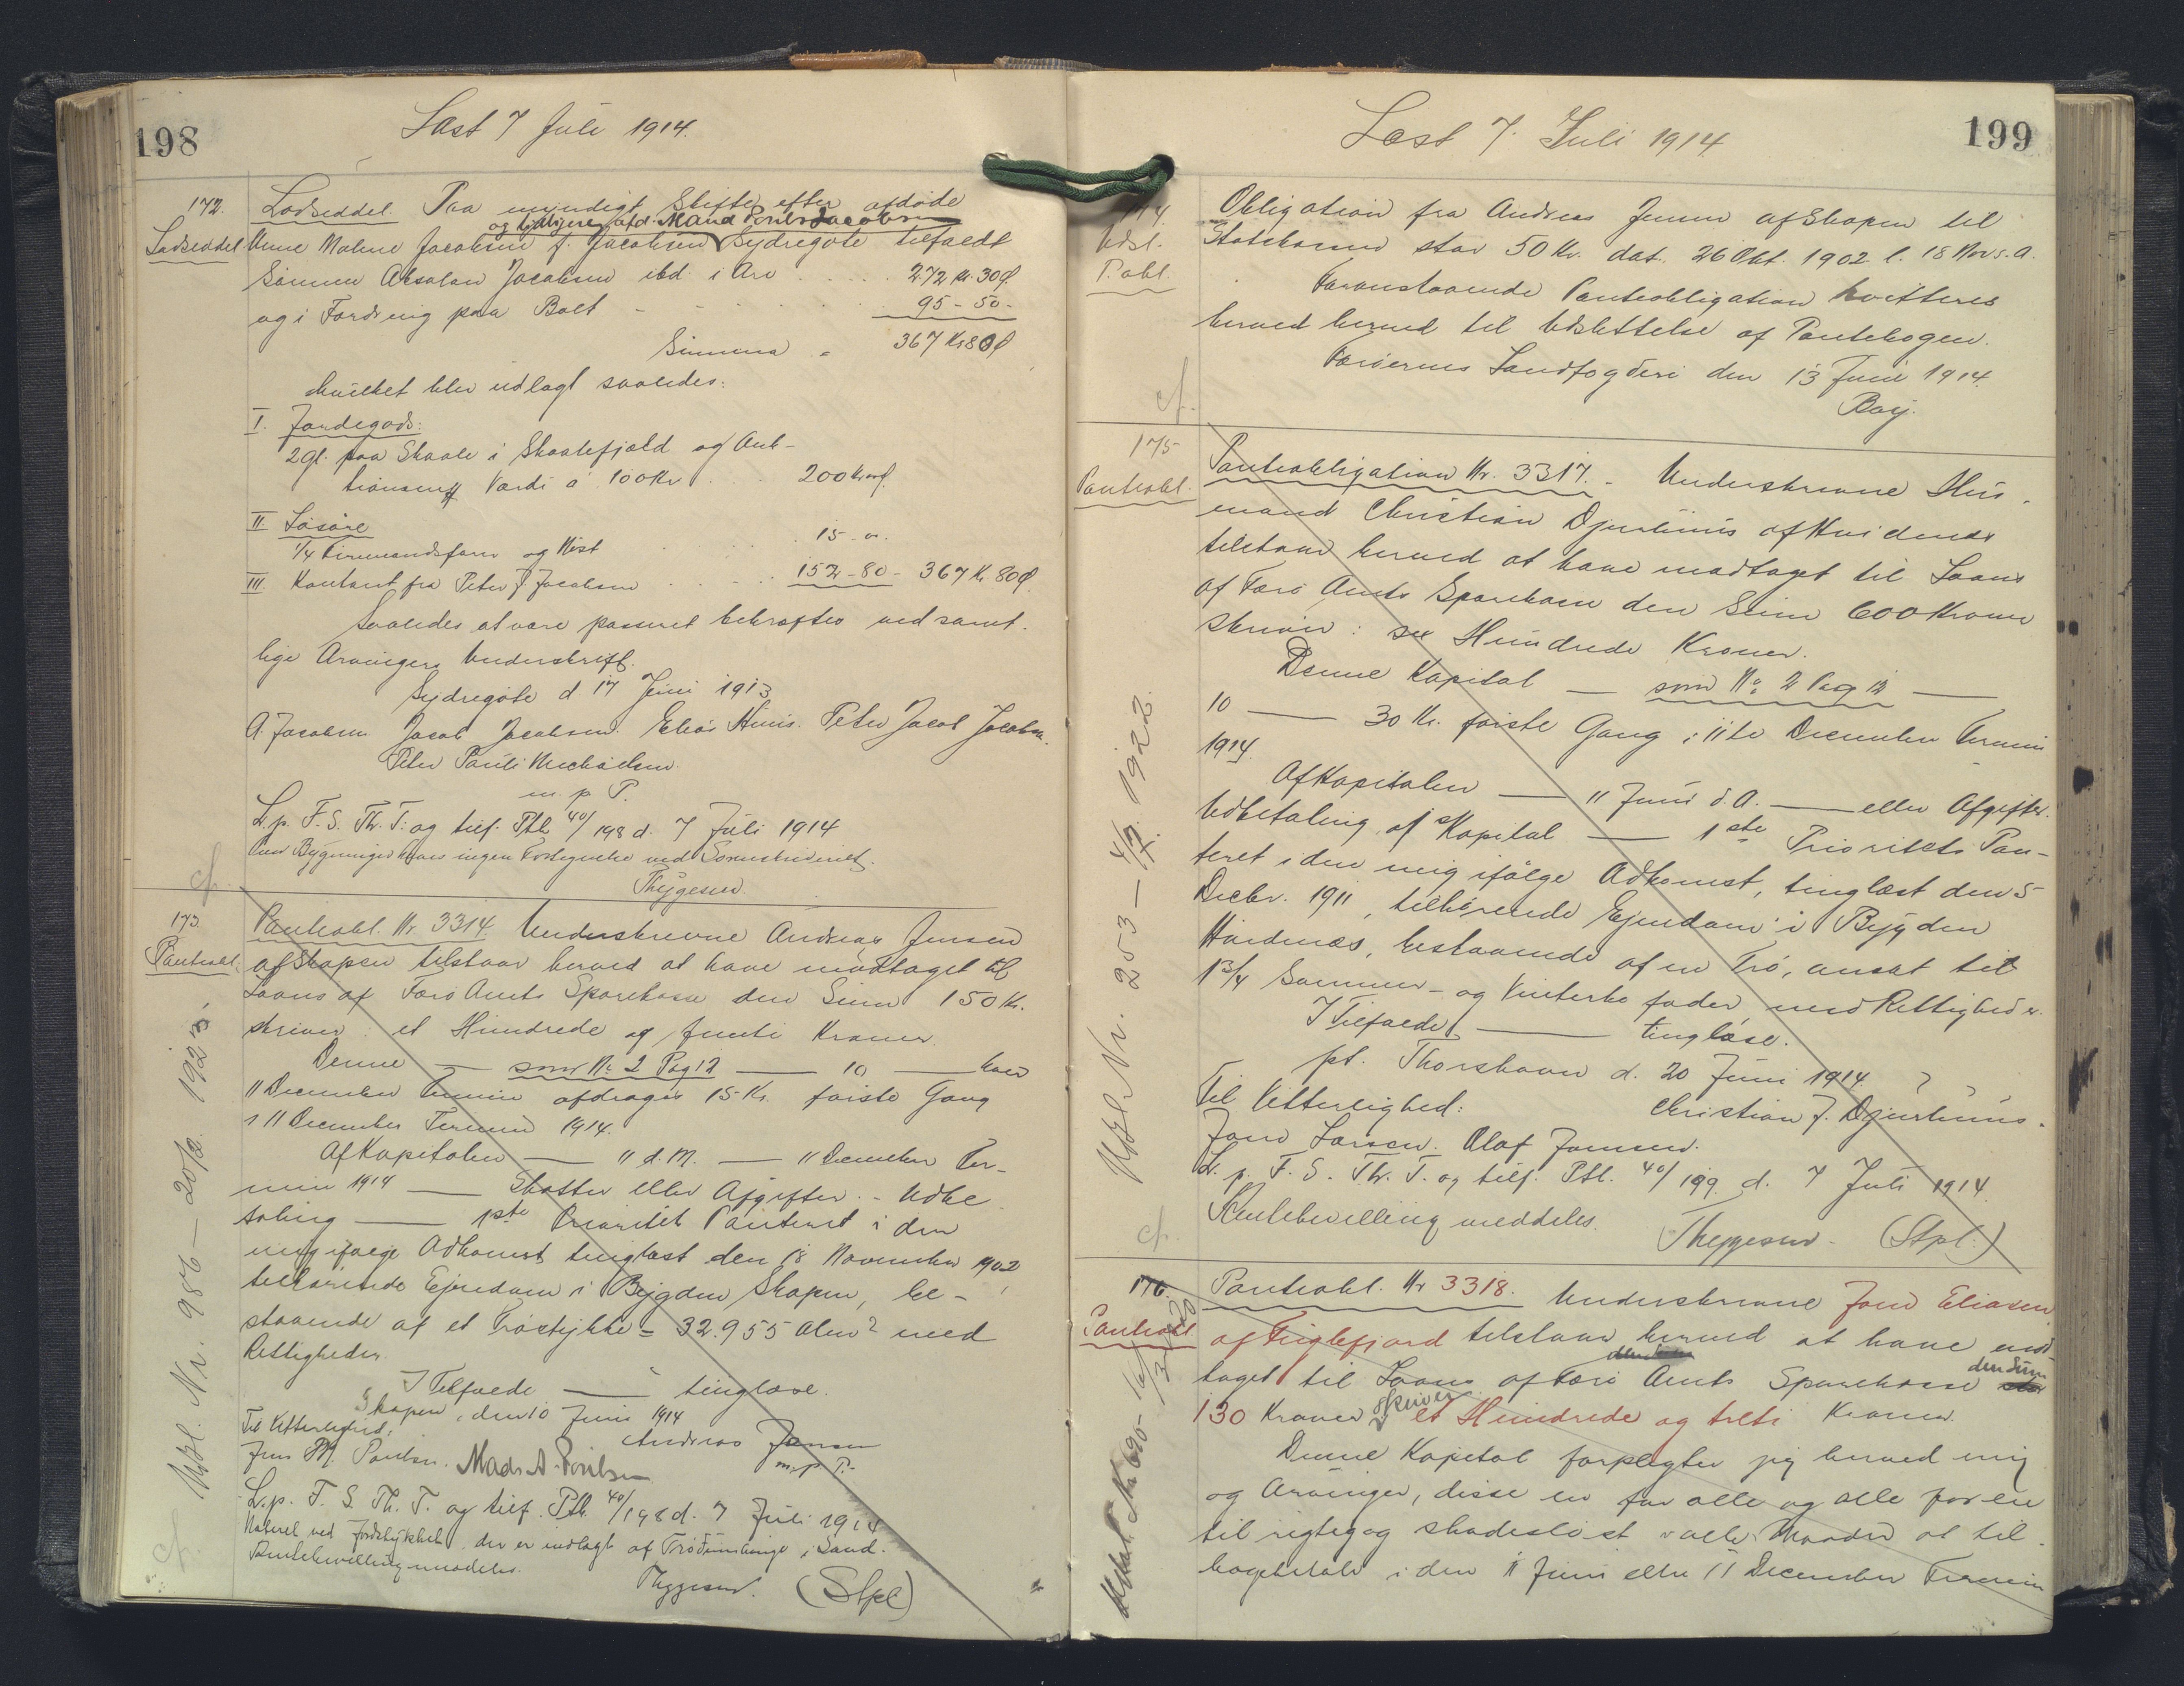 198
Læst 7 Juli 1914.
172.
Lodseddel
Lodseddel. Paa myndigt Skifte efter afdøde
og tidligere afd. Mand Poul Jacobsen
Anne Malene Jacobsen f. Jacobsen Sydregøte tilfaldt
Sønnen Absalon Jacobsen ibd. i Arv 272 Kr. 30 Ø.
og i Fordring paa Boet 95 - 50 -
Summa 367 Kr 80 Ø
hvilket blev udlagt saaledes:
I. Jordegods:
2 gl. paa Skaale i Skaalefjæld og Ant-
Værdi a 100 Kr 200 Kr
II Løsøre
1/4 og Nøst 15 - "
III. Kontant fra Peter J. Jacobsen 152 - 80 - 367 Kr 80 Ø.
Saaledes at være passeret bekræftes ved samt-
lige Arvingers Underskrift.
Sydregøte d 17 Juni 1913
A. Jacobsen Jacob Jacobsen. Elias Peter Jacob Jacobsen.
Peter Pauli Michaelsen.
m. p. P.
L. p. F. S. Th. T. og tilf. Ptb. 40/198 d. 7 Juli 1914
Om Bygninger haves ingen Fortegnelse ved Sorenskriveriet.
Thygesen.
cf.
173.
Panteobl.
Panteobl. Nr. 3314. Underskrevne Andreas Jensen
af Skapen tilstaar herved at have modtaget til
Laans af Færø Amts Sparekasse den Sum 150 Kr.
skriver: et Hundrede og femti Kroner.
Denne — som No 2 Pag 12 — 10 — hver
11 December Termin afdrages 15 Kr. første Gang
i 11 December Termin 1914.
Af Kapitalen — 11 d. M. — 11 December Ter-
min 1914 — Skatter eller Afgifter. - Udbe
taling — 1ste Prioritet Panteret i den
mig ifølge Adkomst tinglæst den 18 November 1902
tilhørende Ejendom i Bygden Skapen, be-
staaende af et Trøstykke = 32.955 Alen2 med
Rettigheder.
I Tilfælde — tinglæse.
Skapen, den 10 Juni 1914
Til Vitterlighed: Andreas Jensen
Jens M. Poulsen. Mads A. Poulsen m. p. P.
L. p. F. S. Th. T. og tilf. Ptb. 40/198 d. 7 Juli 1914
der er indlagt af i Sand.
Rentebevilling meddeles.
Thygesen. (Stpl)
cf.
Udsl. Nr. 986 - 20/2 1923.
199
Læst 7. Juli 1914
174
Udsl.
P.obl.
Obligation fra Andreas Jensen af Skapen til
Statskassen stor 50 Kr. dat. 26 Okt. 1902 l. 18 Nov s. A.
Foranstaaende Panteobligation kvitteres
herved herved til Udslettelse af Pantebogen.
Færøernes Landfogderi den 13 Juni 1914.
Bærj.
cf.
175
Panteobl.
Panteobligation Nr. 3317. - Underskrevne Hus-
mand Christian Djurhuus af Hvidenæs
tilstaar herved at have modtaget til Laans
af Færø Amts Sparekasse den Sum 600 Kroner
skriver: sex Hundrede Kroner.
Denne Kapital — som No 2 Pag 12 —
10 — 30 Kr. første Gang i 11te December Termin
1914.
Af Kapitalen — 11 Juni d. A. — eller Afgifter.
Udbetaling af Kapital — 1ste Prioritets Pan-
teret i den mig ifølge Adkomst, tinglæst den 5
Decbr. 1911, tilhørende Ejendom i Bygden
Hvidenæs, bestaaende af en Trø, ansat til
1 3/4 Sommer- og Vinterko foder, med Rettigheder.
I Tilfælde — tinglæse.
pt. Thorshavn d. 20 Juni 1914
Til Vitterlighed: Christian J. Djurhuus.
Joen Larsen. Olaf Joensen.
L. p. F. S. Th. T. og tilf. Ptb. 40/199 d. 7 Juli 1914.
Rentebevilling meddeles. Thygesen - (Stpl.)
cf.
Udsl. Nr. 253 - 4/7 1922.
176.
Panteobl
Panteobl. Nr 3318. Underskrevne Joen Eliasen
af Fuglefjord tilstaar herved at have mod-
taget til Laans af Færø Amts Sparekasse den Sum
130 Kroner skriver et Hundrede og tredi Kroner.
Denne Kapital forpligter jeg herved mig
og Arvinger, disse en for alle og alle for en
til rigtig og skadesløst i alle Maader at til-
bagebetale i den 11 Juni eller 11 December Termin